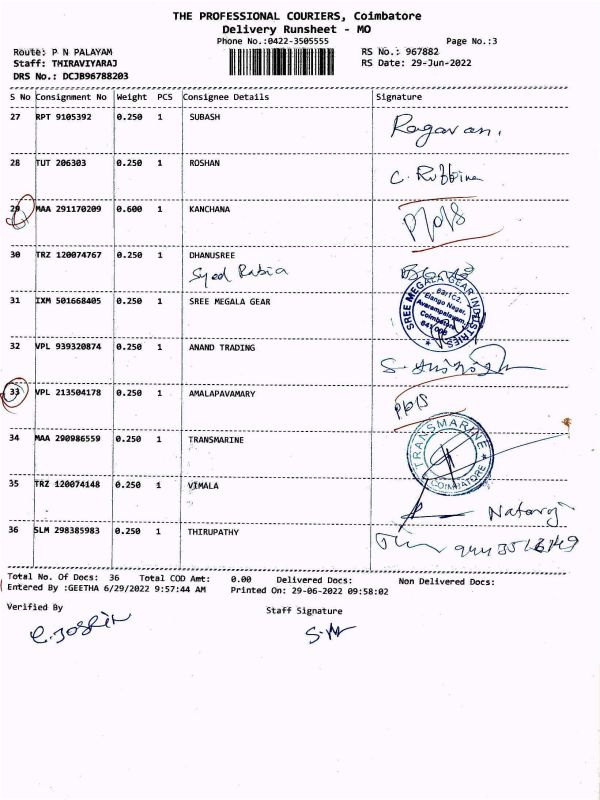 THE PROFESSIONAL COURIERS, Coimbatore
Delivery Runsheet - MO
Phone No.:0422-3505555
Page No.:3
Route: P N PALAYAM
RS No.: 967882
Staff: THIRAVIYARAJ
RS Date: 29-Jun-2022
DRS No.: DCJB96788203
S No Consignment No Weight PCS Consignee Details Signature
27 RPT 9105392 0.250 1 SUBASH Ragavan.
28 TUT 206303 0.250 1 ROSHAN
29 MAA 291170209 0.600 1 KANCHANA
30 TRZ 120074767 0.250 1 DHANUSREE
Syed Rabia
31 IXM 501668405 0.250 1 SREE MEGALA GEAR
SREE MEGALA GEAR INDUSTRIES
Elango Nagar,
Avarampalayam,
Coimbatore
32 VPL 939320874 0.250 1 ANAND TRADING
33 VPL 213504178 0.250 1 AMALAPAVAMARY
34 MAA 290986559 0.250 1 TRANSMARINE
TRANSMARINE
COIMBATORE
35 TRZ 120074148 0.250 1 VIMALA
Nataraj
36 SLM 298385983 0.250 1 THIRUPATHY
Total No. Of Docs: 36 Total COD Amt: 0.00 Delivered Docs: Non Delivered Docs:
Entered By :GEETHA 6/29/2022 9:57:44 AM Printed On: 29-06-2022 09:58:02
Verified By
Staff Signature